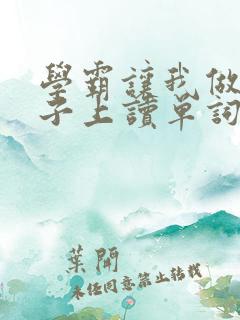 學霸讓我做
子上讀單詞
葉開
未經同意禁止轉載